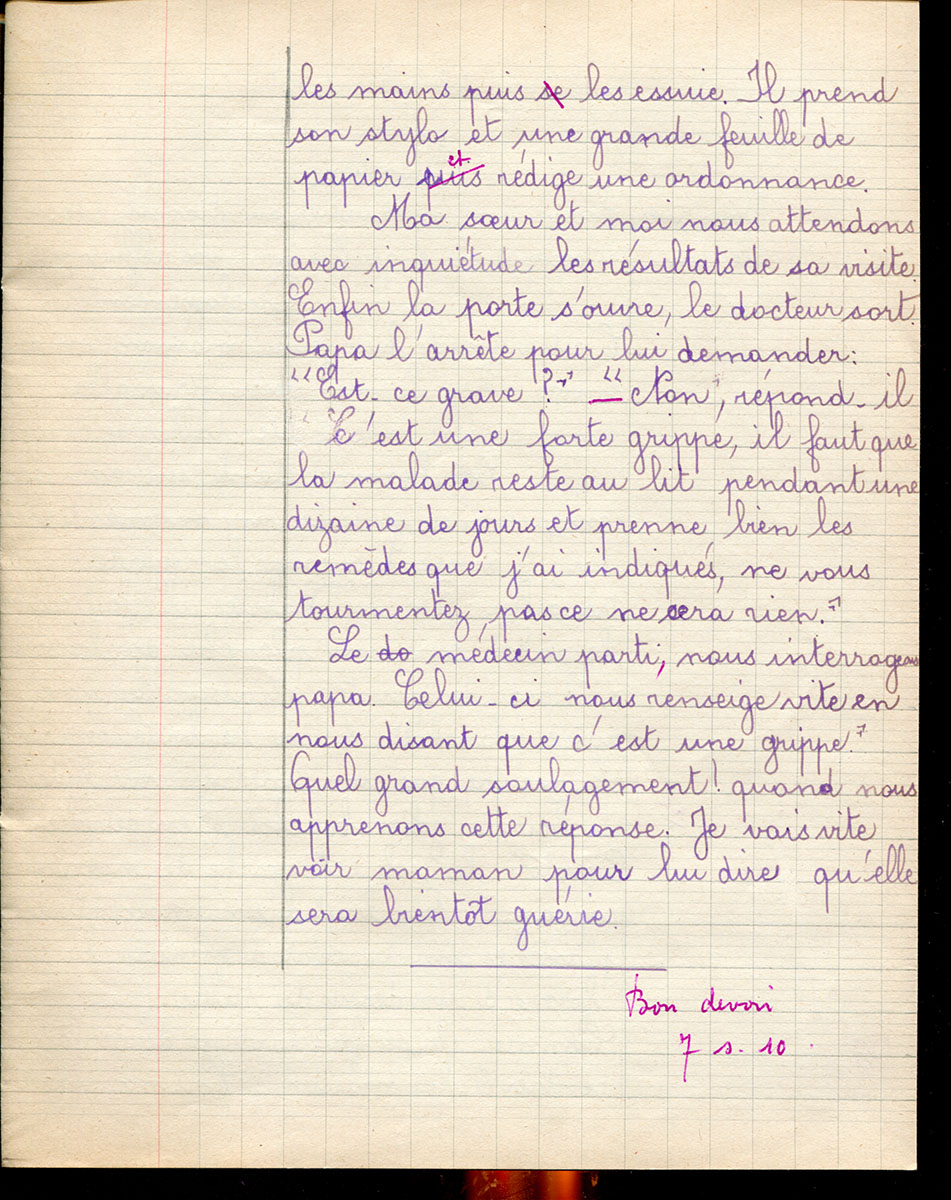 les mains puis se les essuie. Il prend
son stylo et une grande feuille de
papier puis et rédige une ordonnance.
Ma sœur et moi nous attendons
avec inquiétude les résultats de sa visite.
Enfin la porte s'ouvre, le docteur sort.
Papa l'arrête pour lui demander:
"Est-ce grave ?" — "Non", répond-il
"C'est une forte grippe, il faut que
la malade reste au lit pendant une
dizaine de jours et prenne bien les
remèdes que j'ai indiqués, ne vous
tourmentez pas ce ne sera rien."
Le do médecin parti, nous interrogeons
papa. Celui-ci nous renseige vite en
nous disant que c'est une grippe."
Quel grand soulagement! quand nous
apprenons cette réponse. Je vais vite
voir maman pour lui dire qu'elle
sera bientôt guérie.
Bon devoir
7 s. 10